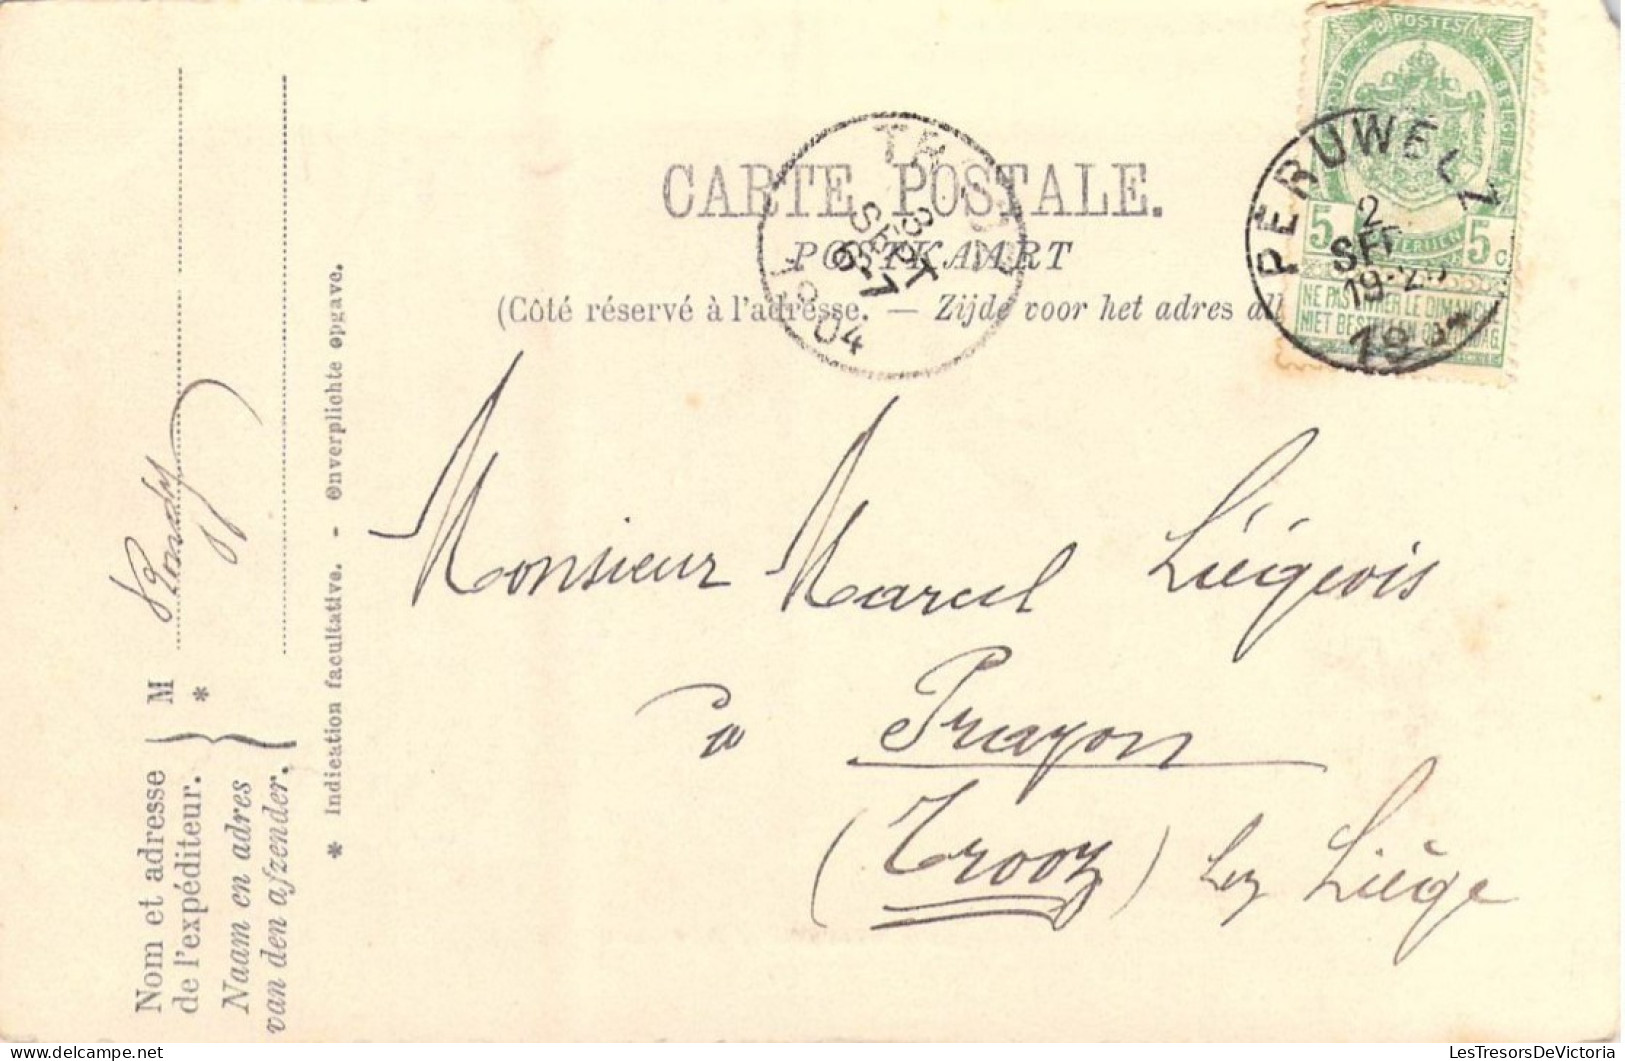 CARTE POSTALE.
POSTKAART
(Côté réservé à l'adresse. — Zijde voor het adres
POSTES
5 5 c
NE PAS LIVRER LE DIMANCHE
NIET BESTELLEN OP ZONDAG
PERUWELZ
2
SEPT
19-20
19
3
SEPT
6-7
04
Monsieur Marcel Liégeois
à Prayon
(Trooz) lez Liège
Nom et adresse
de l'expéditeur.
Naam en adres
van den afzender.
M
*
* Indication facultative. - Onverplichte opgave.
LesTresorsDeVictoria